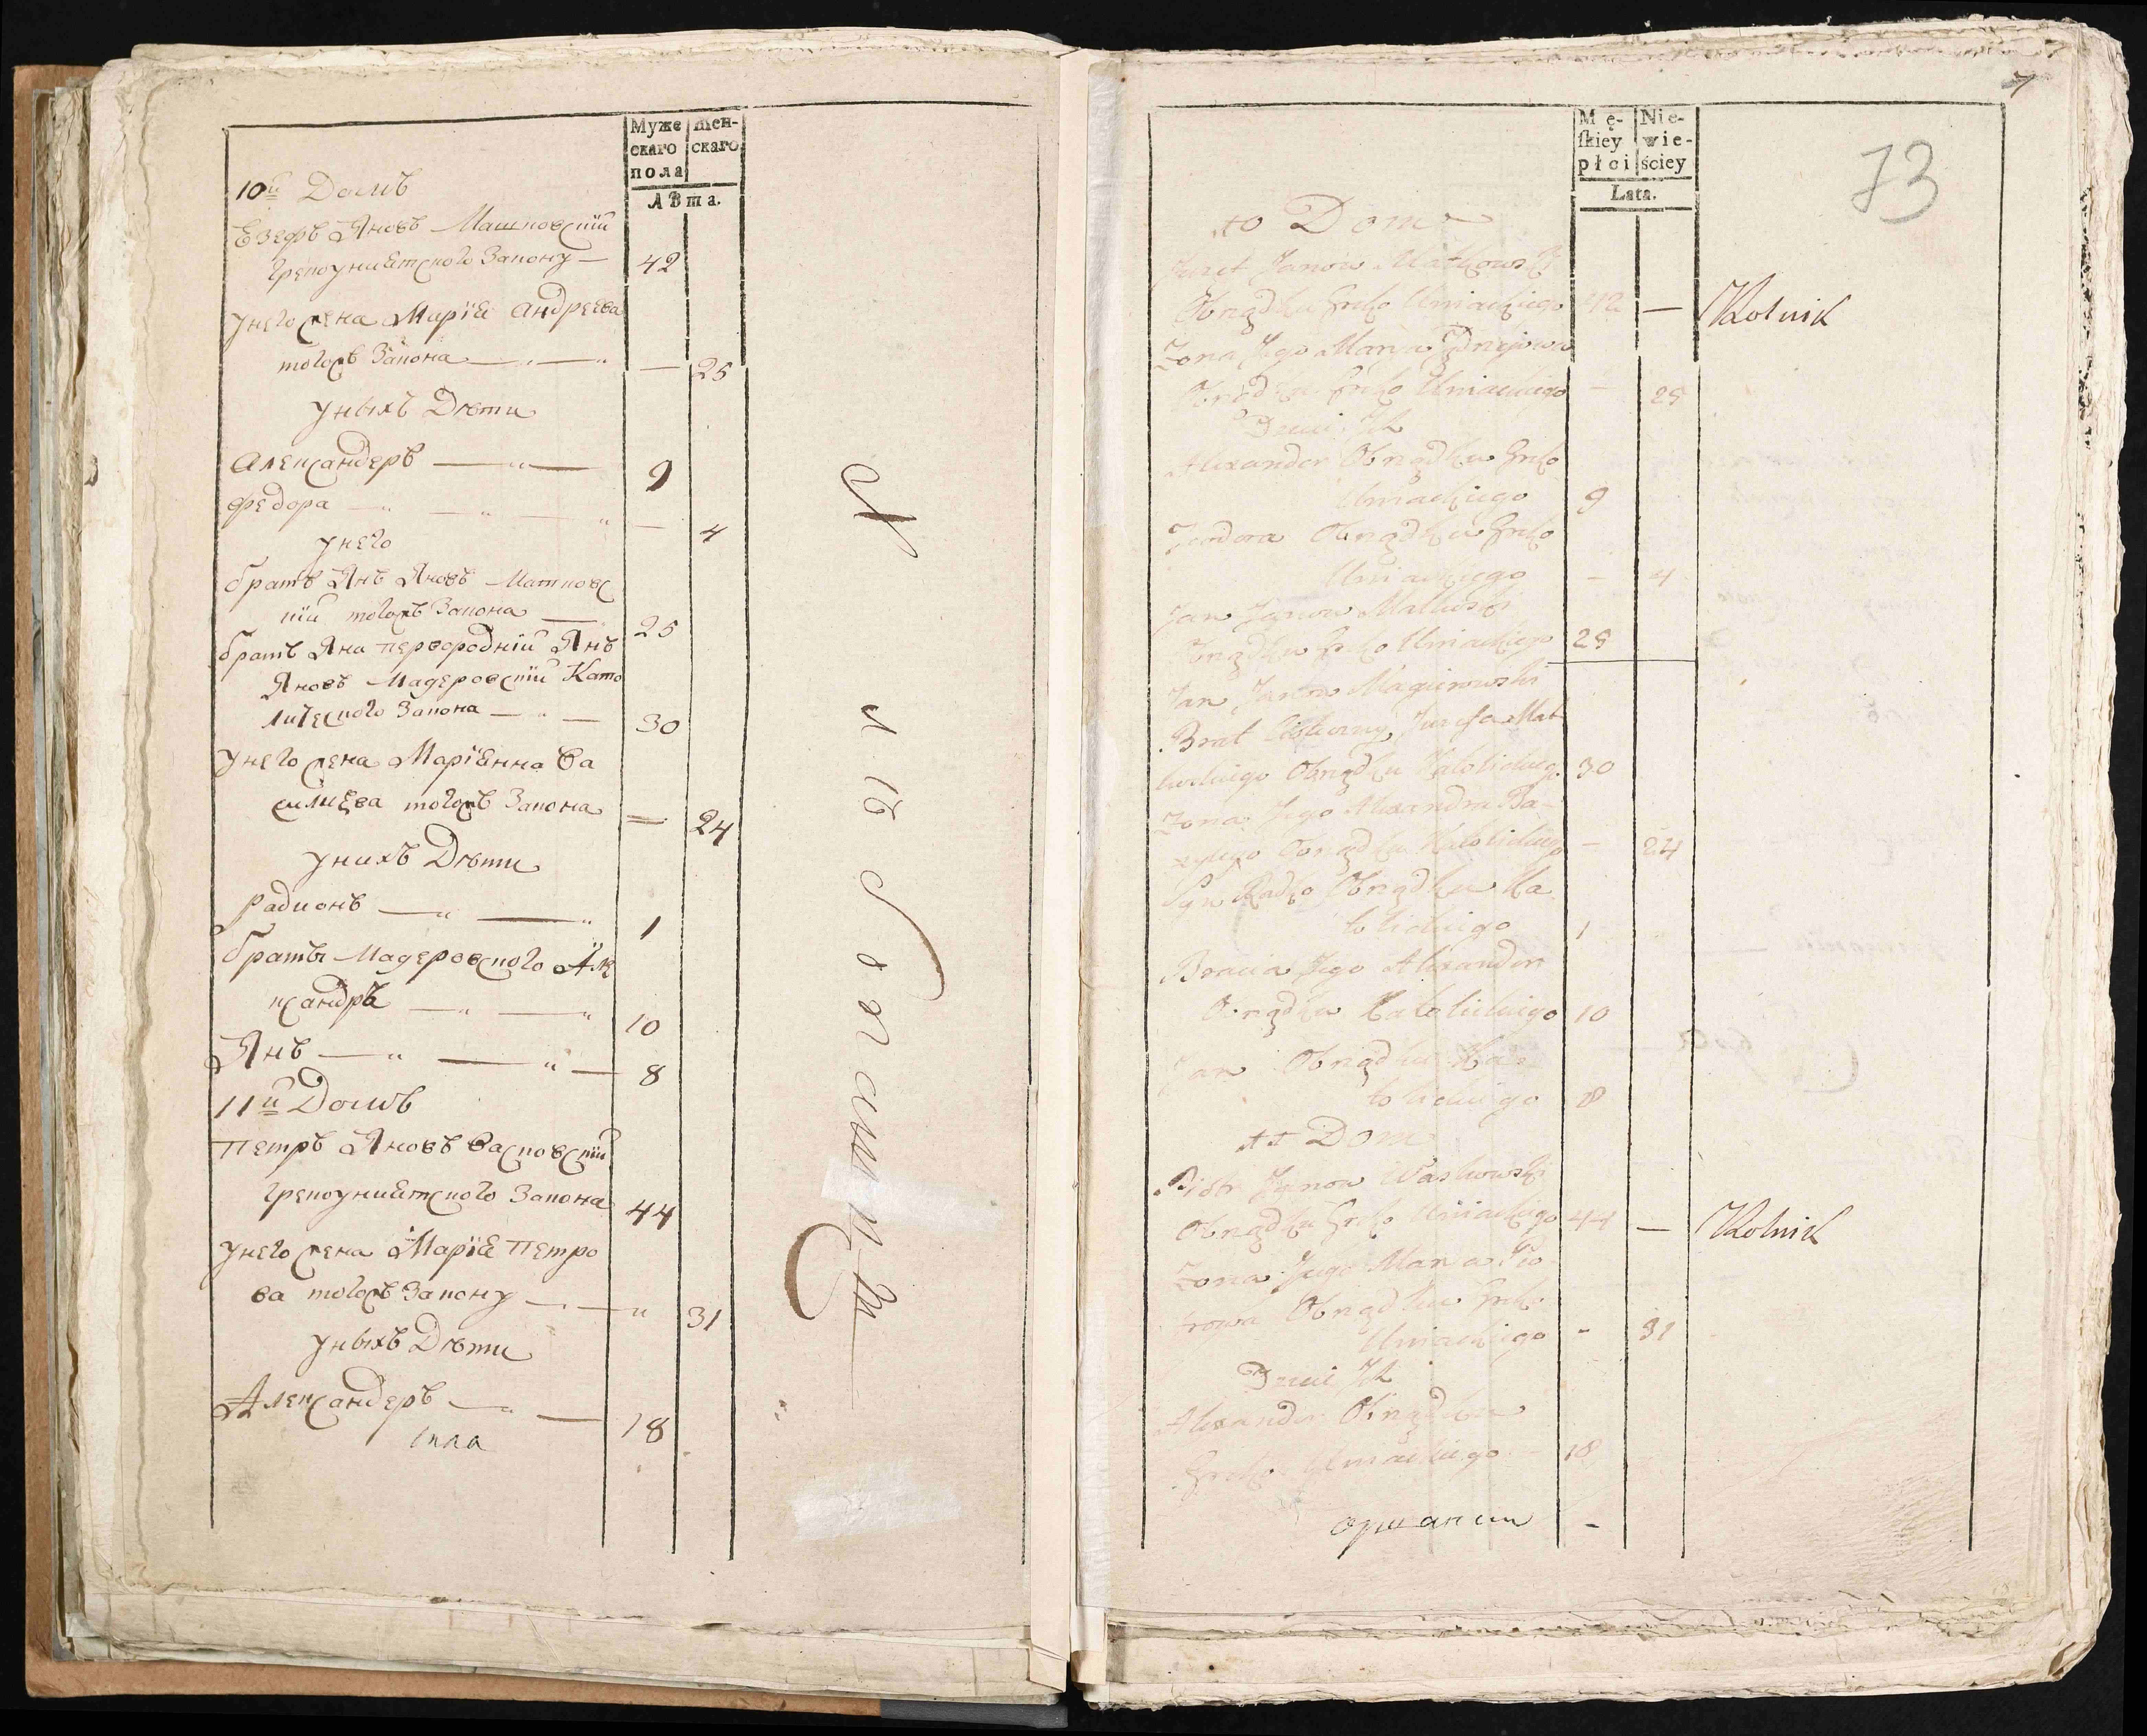 Муже
скаго
пола
жен-
скаго
лѣта.
10й Домъ
Езефъ Яновъ Машковскій
Грекоуніятского Закону — 42
унего жена Марія Андреева
тогожъ Закона — — 25
уныхъ Дѣти
Александеръ — 9
Федора — — 4
унего
братъ Янъ Яновъ Матковс
кій тогожъ Закона — 25
братъ Яна первородній Янъ
Яновъ Мадеровскій Като
лического Закона — 30
унего жена Маріенна Ва
силиева тогожъ Закона — 24
унихъ Дѣти
Радионъ — 1
братъ Мадеровского Але
ксандръ — 10
Янъ — 8
11й Домъ
Петръ Яновъ Васковскій
Грекоуніятского Закона 44
унего жена Марія Петро
ва тогожъ Закону — 31
уныхъ Дѣти
Александеръ — 18
7
73
Mę-
skiey
płci
Nie-
wie-
ściey
Lata.
10 Dom
Juzef Janow Matkowski
Obrządku Greko Uniackiego 42 — Rolnik
Żona Jego Marya
Obrządku Greko Uniackiego — 25
Dzieci Ich
Alexander Obrządku Greko
Uniackiego 9
Teodora Obrządku Greko
Uniackiego — 4
Jan Janow Matkowski
Obrządku Greko Uniackiego 25
Jan Janow Magierowski
Brat Juzefa Mat
kowskiego Obrządku Katolickiego 30
Żona Jego Alexandra Ba-
zylego Obrządku Katolickiego — 24
Syn Radko Obrządku Ka
tolickiego 1
Bracia Jego Alexander
Obrządku Katolickiego 10
Jan Obrządku Ka-
tolickiego 8
11 Dom
Piotr Janow Waskowski
Obrządku Greko Uniackiego 44 — Rolnik
Żona Jego Marya Pio
trowa Obrządku Greko
Uniackiego - 31
Dzieci Ich
Alexander Obrządku
Greko Uniackiego — 18